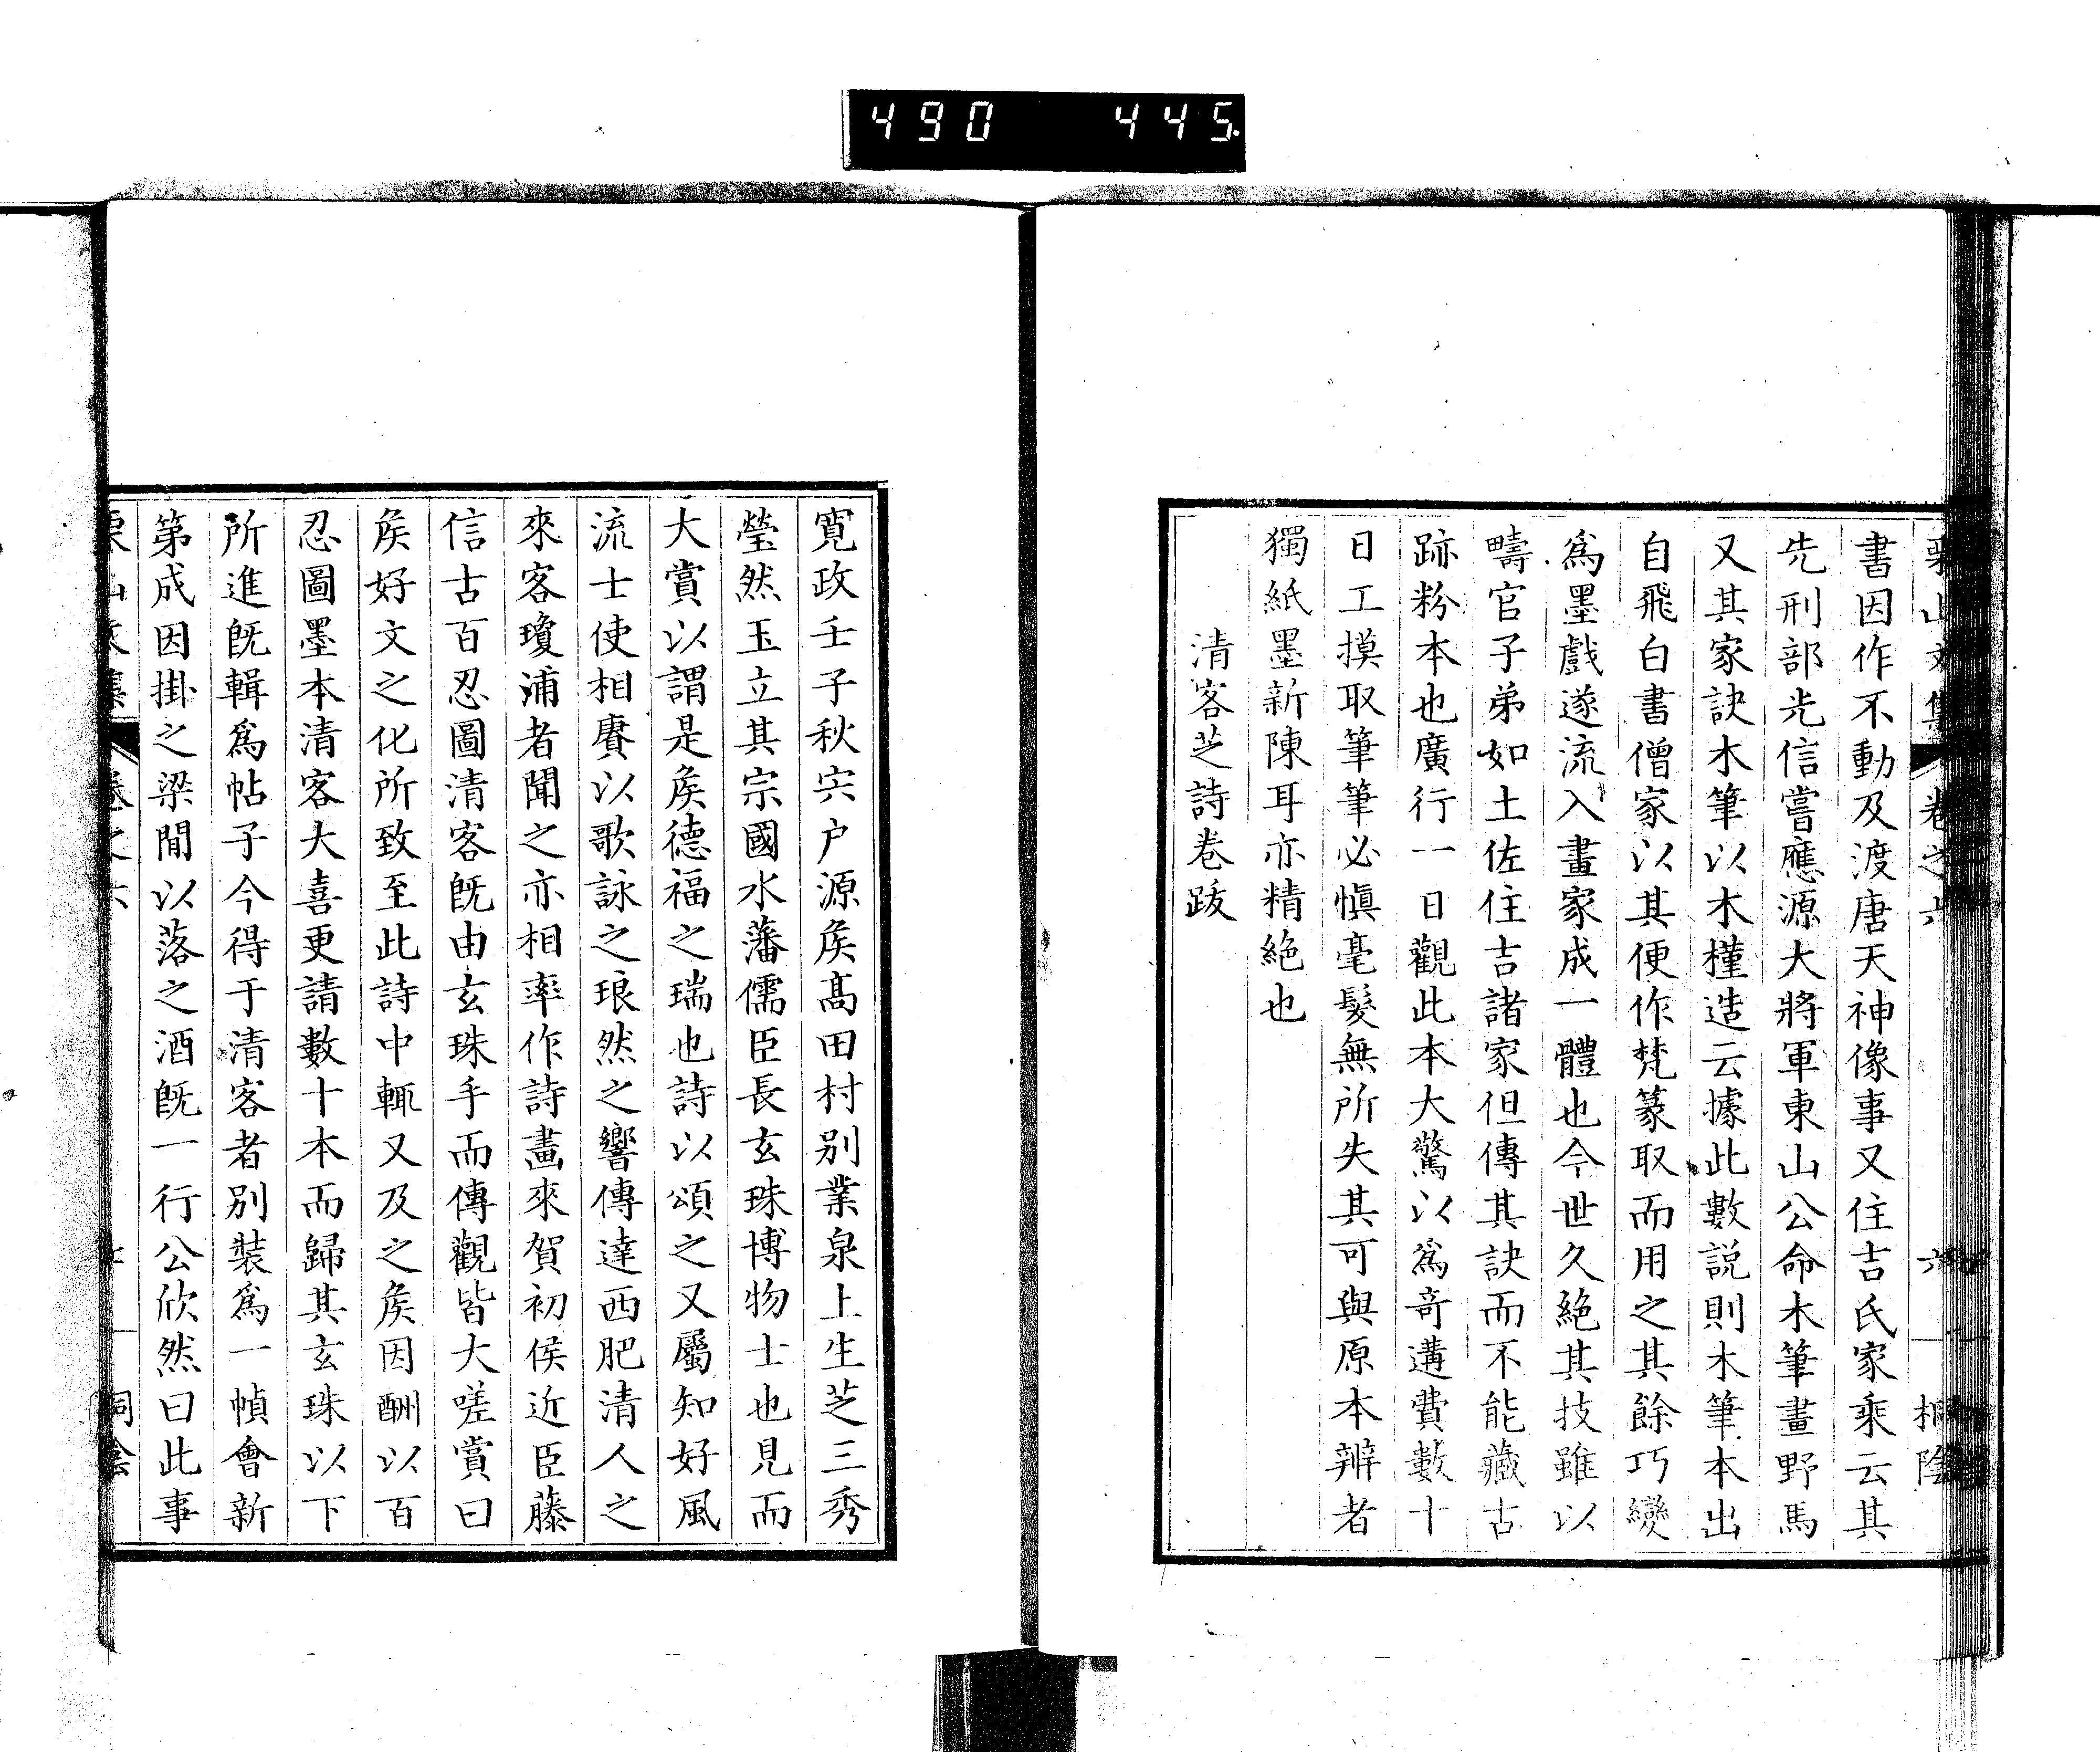 490 445.
栗山文集 卷之六 六 桐陰
書因作不動及渡唐天神像事又住吉氏家乘云其
先刑部光信嘗應源大將軍東山公命木筆畫野馬
又其家訣木筆以木槿造云據此數説則木筆本出
自飛白書僧家以其便作梵篆取而用之其餘巧變
爲墨戲遂流入畫家成一體也今世久絶其技雖以
疇官子弟如土佐住吉諸家但傳其訣而不能藏古
跡粉本也廣行一日觀此本大驚以爲奇遘費數十
日工摸取筆筆必愼毫髮無所失其可與原本辨者
獨紙墨新陳耳亦精絶也
清客芝詩卷跋
寛政壬子秋宍户源矦髙田村別業泉上生芝三秀
瑩然玉立其宗國水藩儒臣長玄珠博物士也見而
大賞以謂是矦德福之瑞也詩以頌之又屬知好風
流士使相賡以歌詠之琅然之響傳達西肥清人之
來客瓊浦者聞之亦相率作詩畫來賀初侯近臣藤
信古百忍圖清客旣由玄珠手而傳觀皆大嗟賞曰
矦好文之化所致至此詩中輒又及之矦因酬以百
忍圖墨本清客大喜更請數十本而歸其玄珠以下
所進旣輯爲帖子今得于清客者別裝爲一幀會新
第成因掛之梁閒以落之酒旣一行公欣然曰此事
栗山文集 卷之六 桐陰